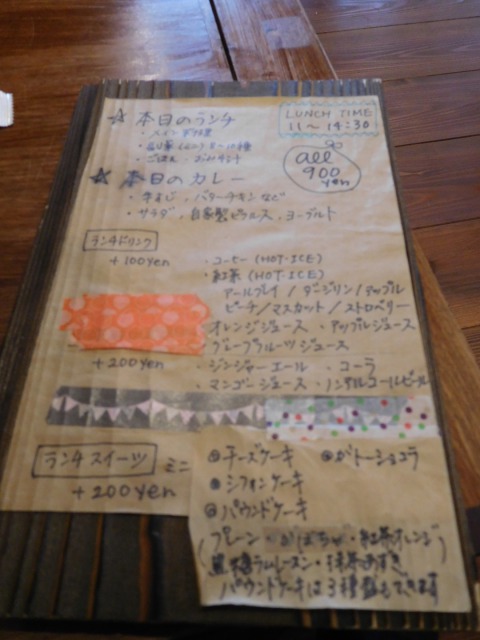 ☆ 本日のランチ
LUNCH TIME
11〜14:30
・メイン
・ごはん
all
900
yen
☆ 本日のカレー
・牛すじ、バターチキンなど
・サラダ、自家製ピクルス、ヨーグルト
ランチドリンク
+100yen
・コーヒー (HOT・ICE)
・紅茶 (HOT・ICE)
アールグレイ / ダージリン / アップル
ピーチ / マスカット / ストロベリー
オレンジジュース ・アップルジュース
グレープフルーツジュース
+200yen
・ジンジャーエール ・コーラ
・マンゴージュース ・ノンアルコールビール
ランチスイーツ ミニ
+200yen
チーズケーキ ガトーショコラ
シフォンケーキ
パウンドケーキ
(プレーン・かぼちゃ・紅茶オレンジ)
黒糖ラムレーズン・抹茶あずき
パウンドケーキは3種盛もできます